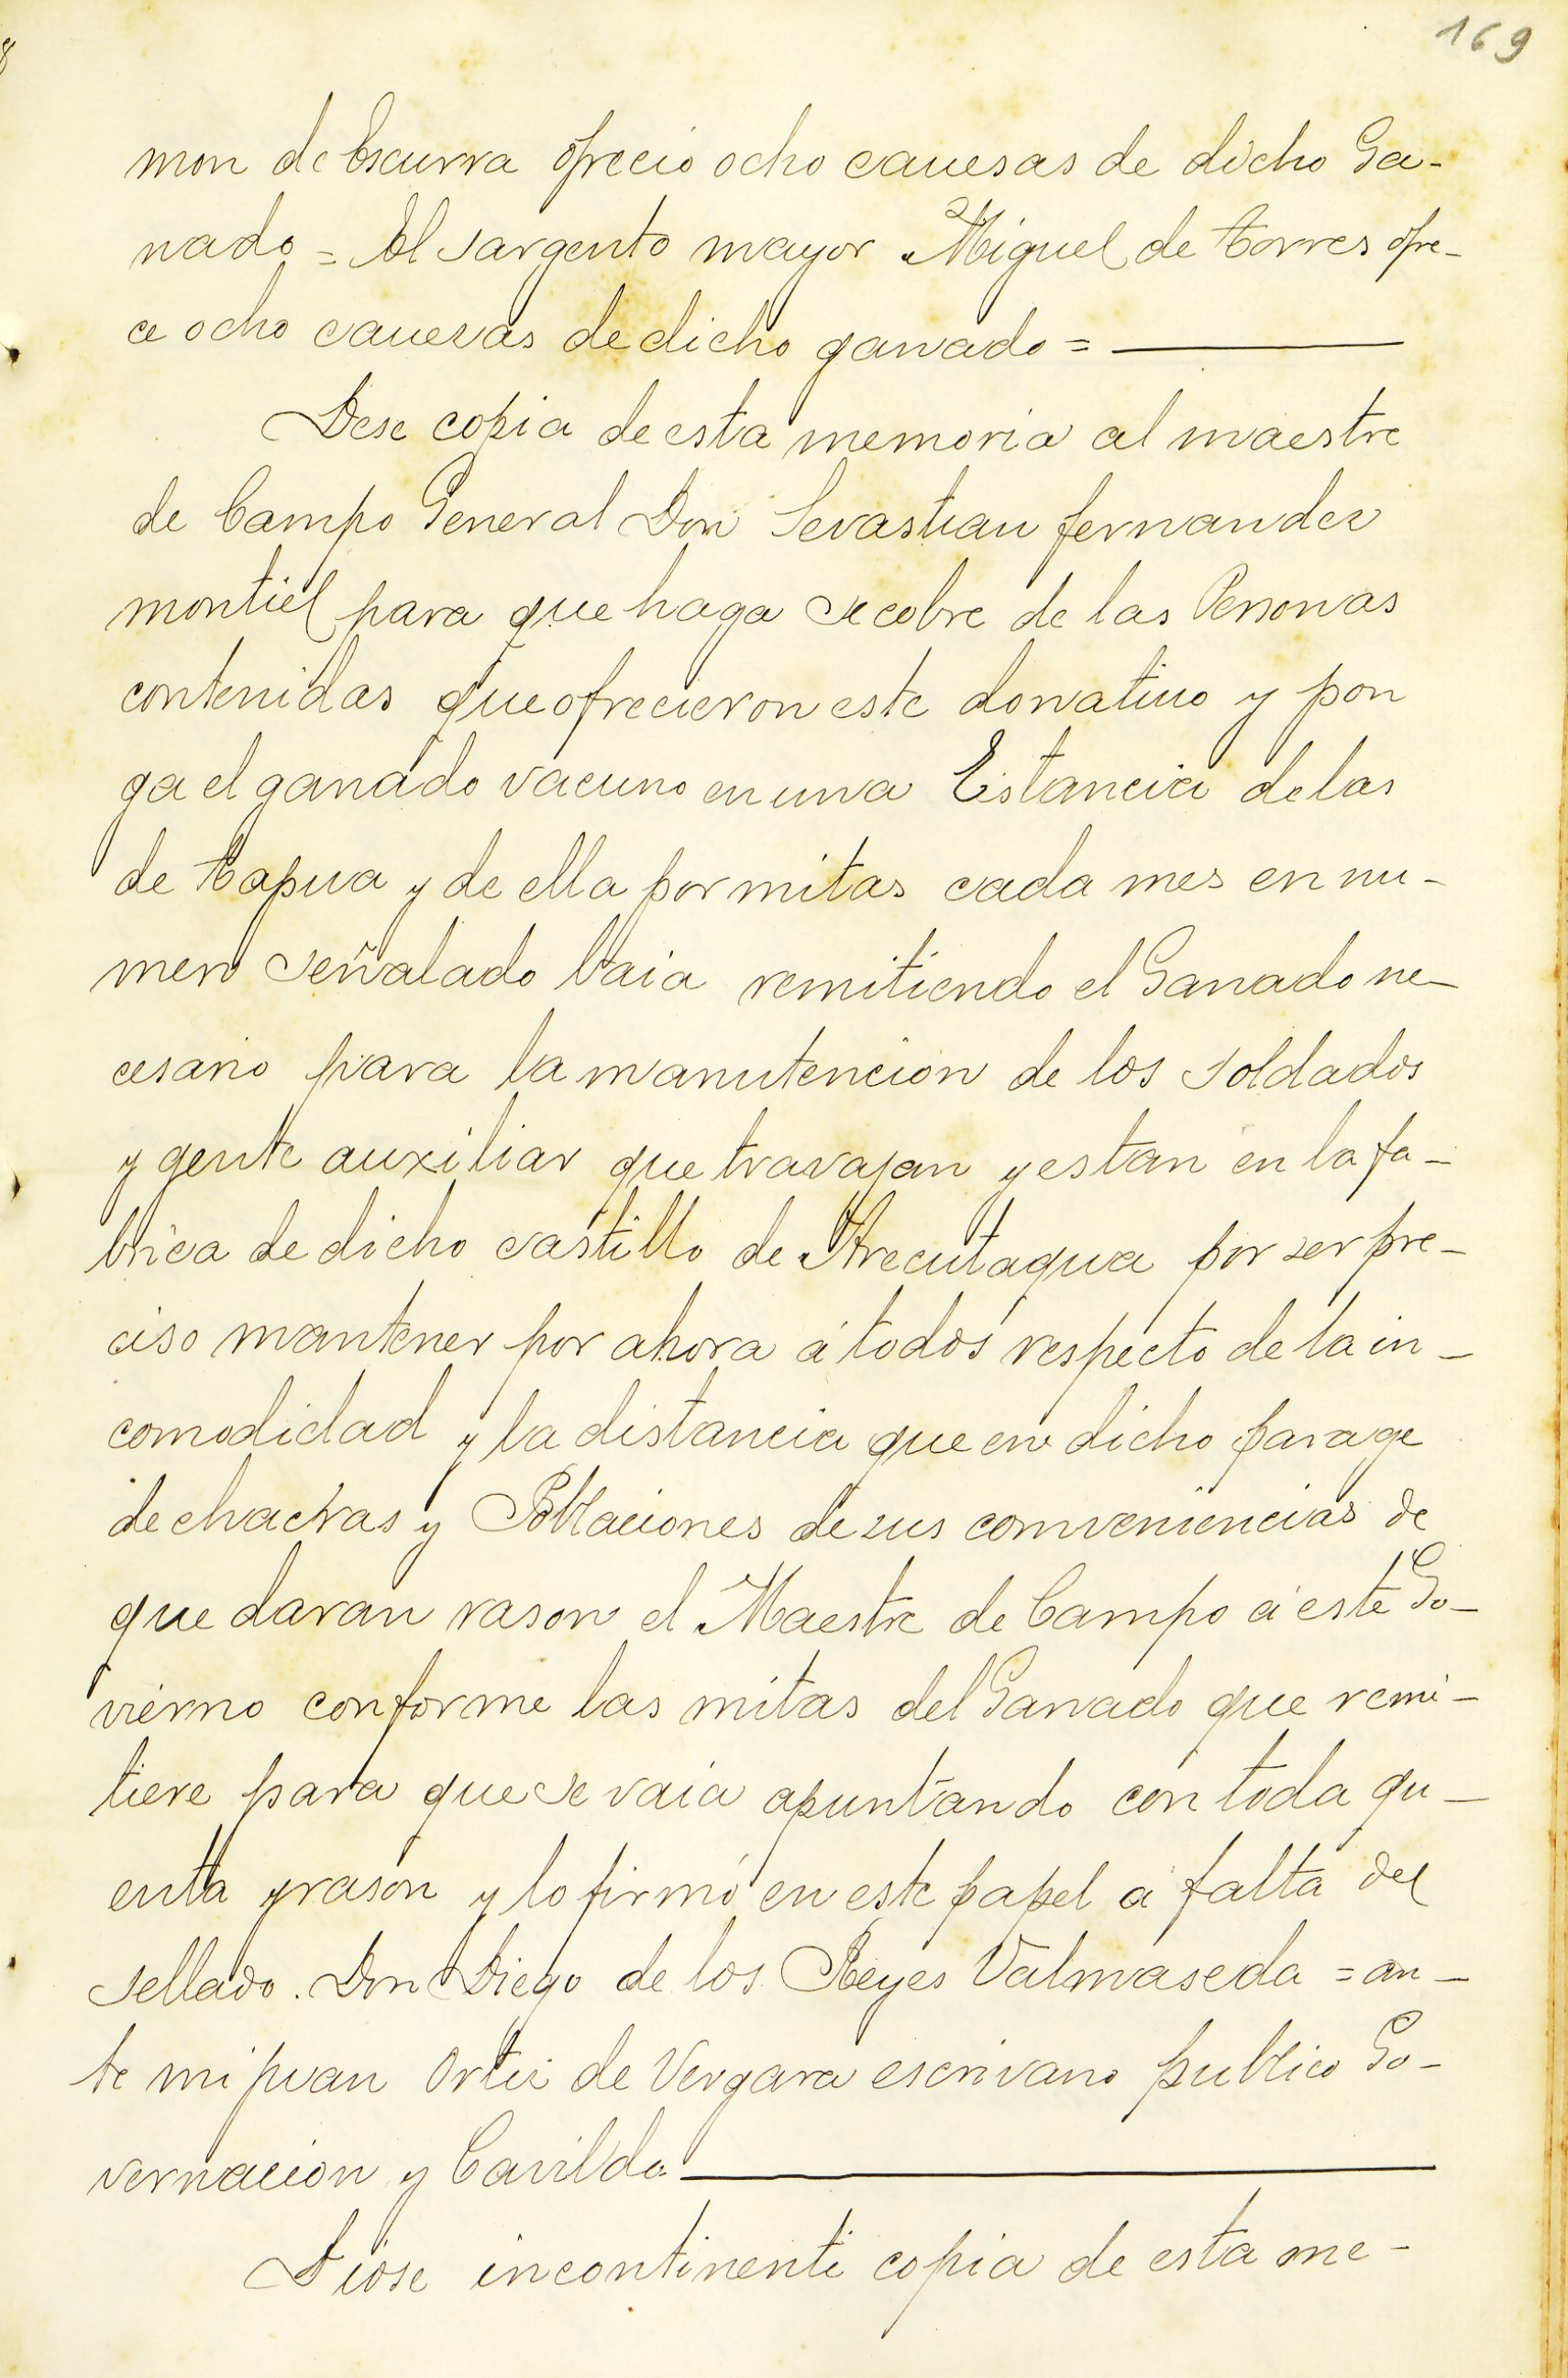 169
mon de Escurra ofrecio ocho cauesas de dicho Ga-
nado = El sargento mayor Miguel de torres ofre-
ce ocho cauesas de dicho ganado =
Dese copia de esta memoria al maestre
de Campo General Don Sevastian fernandez
montiel para que haga se cobre de las Personas
contenidas que ofrecieron este donatiuo y pon
ga el ganado vacuno en una Estancia de las
de tapua y de ella por mitas cada mes en nu-
mero señalado baia remitiendo el Ganado ne-
cesario para la manutencion de los soldados
y gente auxiliar que travajan y estan en la fa-
brica de dicho castillo de Arecutagua por ser pre-
ciso mantener por ahora á todos respecto de la in-
comodidad y la distancia que en dicho parage
de chacras y Poblaciones de sus conveniencias de
que daran rason el Maestre de Campo á este Go-
vierno conforme las mitas del Ganado que remi-
tiere para que se vaia apuntando con toda qu-
enta y rason y lo firmó en este papel á falta del
sellado. Don Diego de los Reyes Valmaseda = an-
te mi juan Ortiz de Vergara escrivano publico Go-
vernacion y Cavildo
Diose incontinenti copia de esta me-